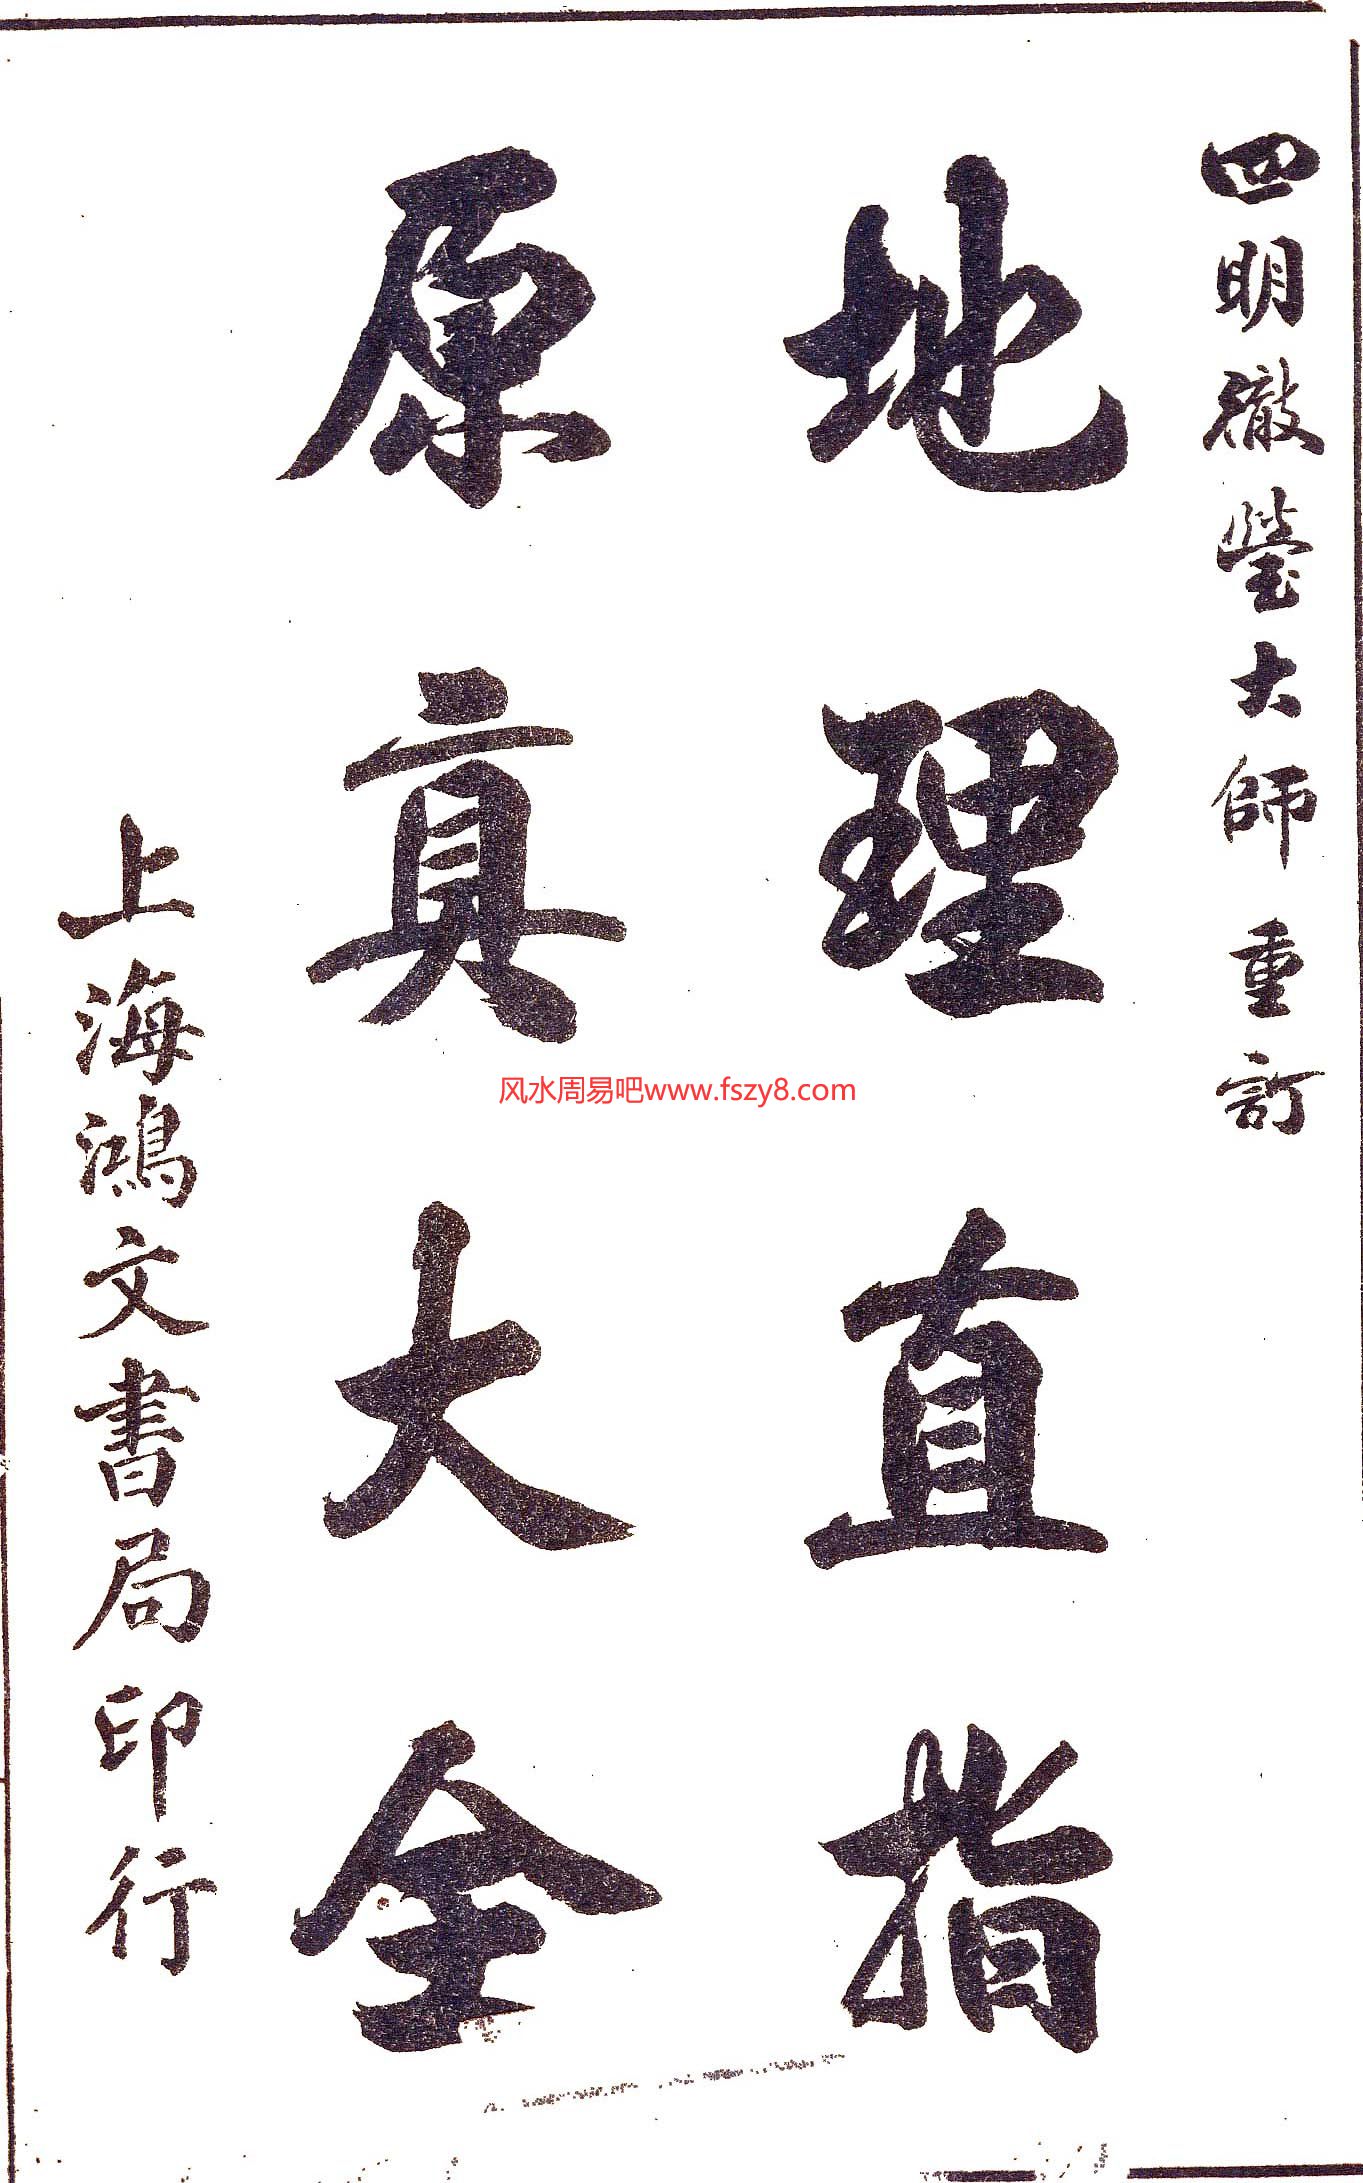 四明徹瑩大師重訂
地理直指
原真大全
上海鴻文書局印行
风水周易吧www.fszy8.com